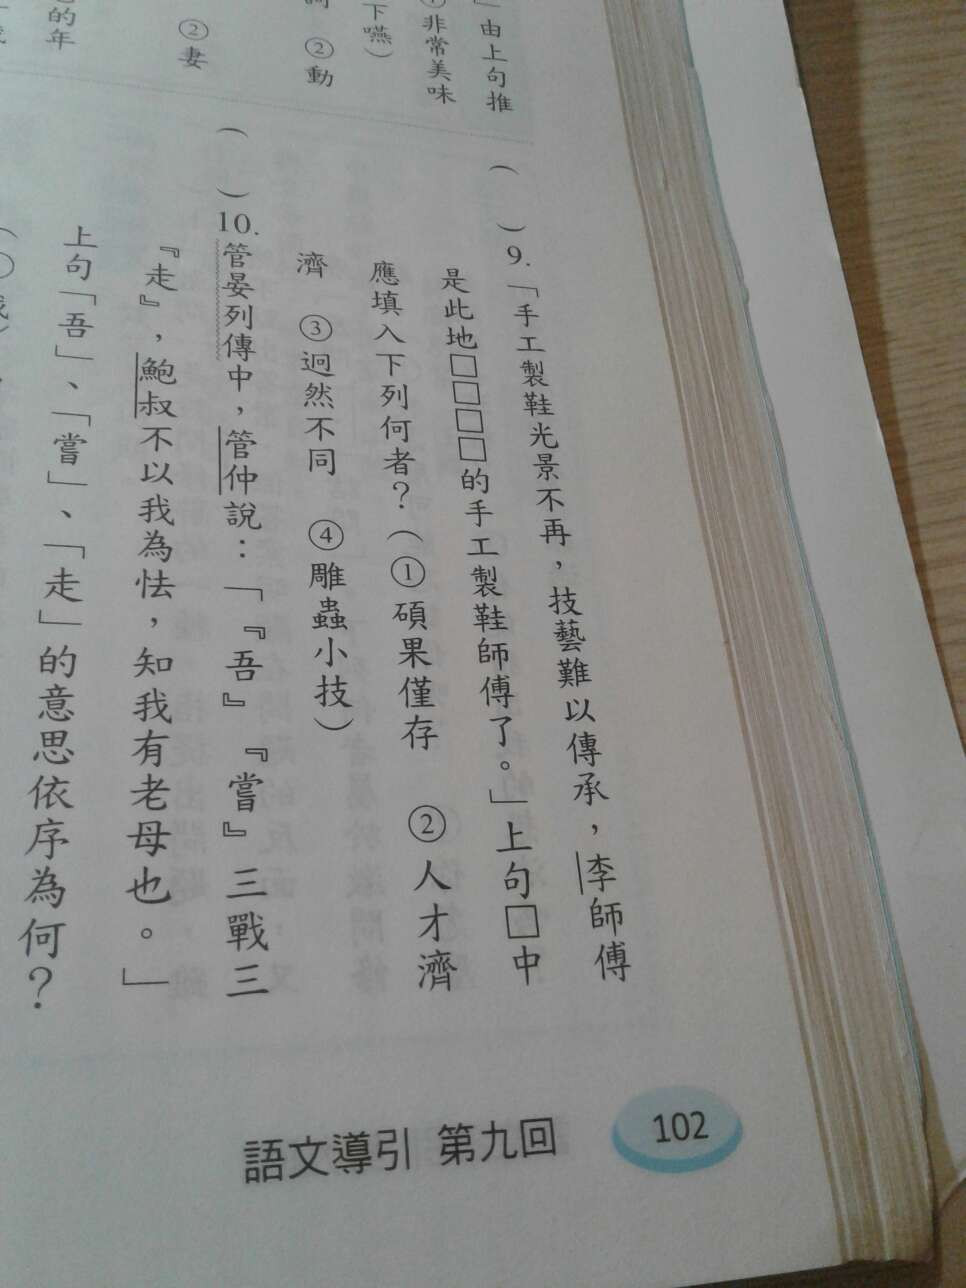 」由上句推
①非常美味
下嚥）
②動
②妻
的年
（　）9.「手工製鞋光景不再，技藝難以傳承，李師傅
是此地□□□□的手工製鞋師傅了。」上句□中
應填入下列何者？（①碩果僅存　②人才濟
濟　③迥然不同　④雕蟲小技）
（　）10.管晏列傳中，管仲說：「『吾』『嘗』三戰三
『走』，鮑叔不以我為怯，知我有老母也。」
上句「吾」、「嘗」、「走」的意思依序為何？
語文導引 第九回
102